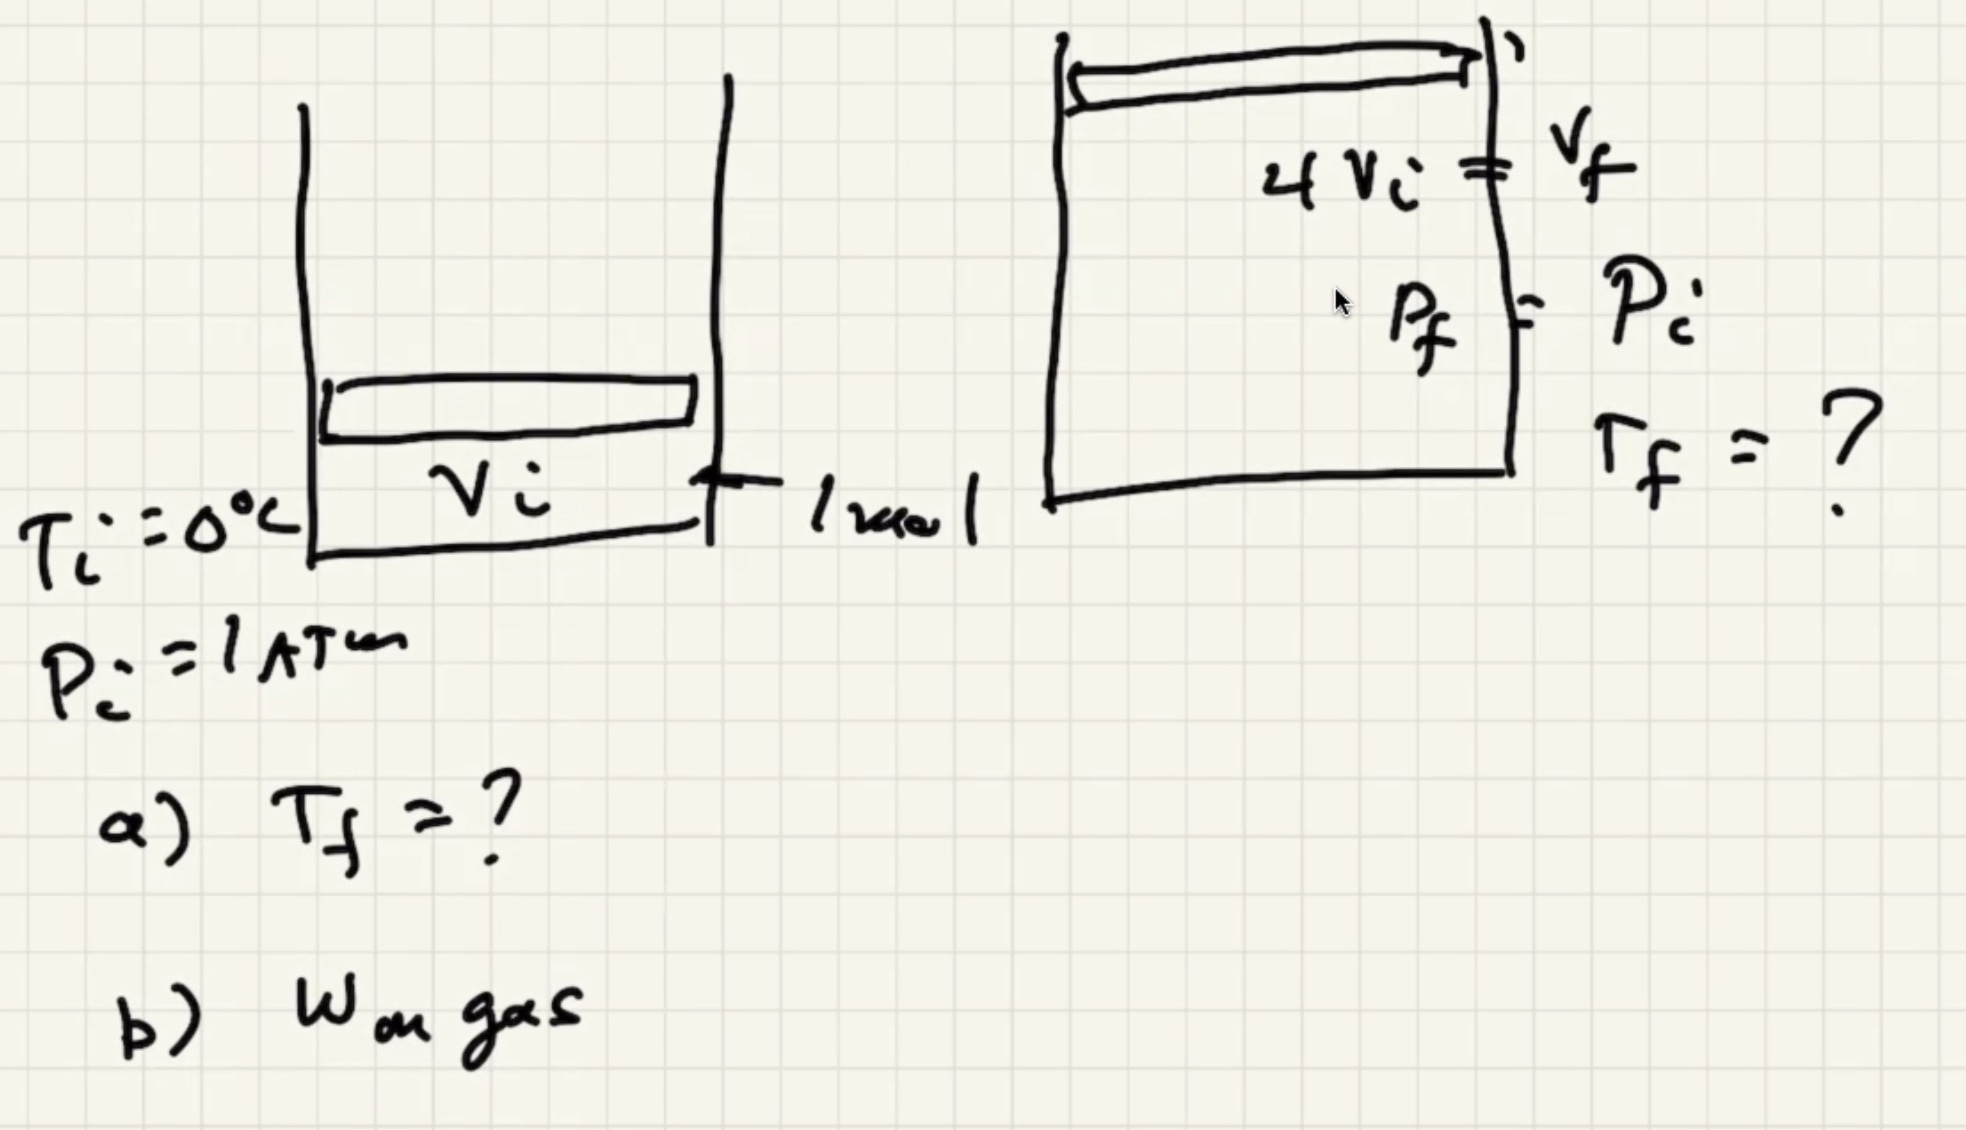 Vi
1 mol
Ti = 0°C
Pi = 1 ATm
4 Vi = Vf
Pf = Pi
Tf = ?
a) Tf = ?
b) W on gas